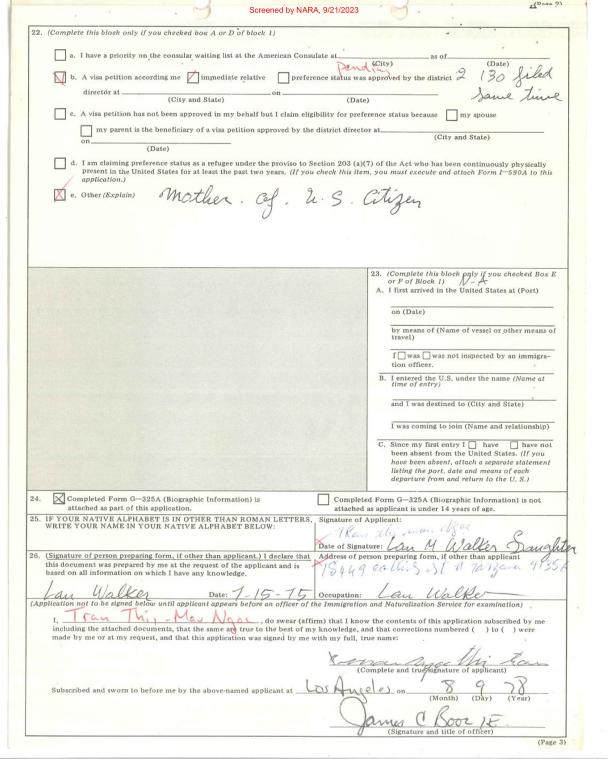 Screened by NARA, 9/21/2023
22. (Complete this block only if you checked box A or D of block 1)
a. I have a priority on the consular waiting list at the American Consulate at as of
(City) (Date)
pending
b. A visa petition according me immediate relative preference status was approved by the district 2 130 filed
director at on same time
(City and State) (Date)
c. A visa petition has not been approved in my behalf but I claim eligibility for preference status because my spouse
my parent is the beneficiary of a visa petition approved by the district director at
(City and State)
on
(Date)
d. I am claiming preference status as a refugee under the proviso to Section 203 (a)(7) of the Act who has been continuously physically
present in the United States for at least the past two years. (If you check this item, you must execute and attach Form I-590A to this
application.)
e. Other (Explain) Mother of U.S. Citizen
23. (Complete this block only if you checked Box E
or F of Block 1) N-A
A. I first arrived in the United States at (Port)
on (Date)
by means of (Name of vessel or other means of
travel)
I was was not inspected by an immigra-
tion officer.
B. I entered the U.S. under the name (Name at
time of entry)
and I was destined to (City and State)
I was coming to join (Name and relationship)
C. Since my first entry I have have not
been absent from the United States. (If you
have been absent, attach a separate statement
listing the port, date and means of each
departure from and return to the U.S.)
24. Completed Form G-325A (Biographic Information) is
attached as part of this application.
Completed Form G-325A (Biographic Information) is not
attached as applicant is under 14 years of age.
25. IF YOUR NATIVE ALPHABET IS IN OTHER THAN ROMAN LETTERS,
WRITE YOUR NAME IN YOUR NATIVE ALPHABET BELOW:
Signature of Applicant:
Date of Signature: Lan M Walker Daughter
26. (Signature of person preparing form, if other than applicant.) I declare that
this document was prepared by me at the request of the applicant and is
based on all information on which I have any knowledge.
Address of person preparing form, if other than applicant
Tarzana
Lan Walker Date: 7-15-75 Occupation: Lan Walker
(Application not to be signed below until applicant appears before an officer of the Immigration and Naturalization Service for examination)
I, Tran Thi-Mau Ngoc, do swear (affirm) that I know the contents of this application subscribed by me
including the attached documents, that the same are true to the best of my knowledge, and that corrections numbered ( ) to ( ) were
made by me or at my request, and that this application was signed by me with my full, true name:
(Complete and true signature of applicant)
Subscribed and sworn to before me by the above-named applicant at Los Angeles on 8 9 78
(Month) (Day) (Year)
James C Booz IE
(Signature and title of officer)
(Page 3)